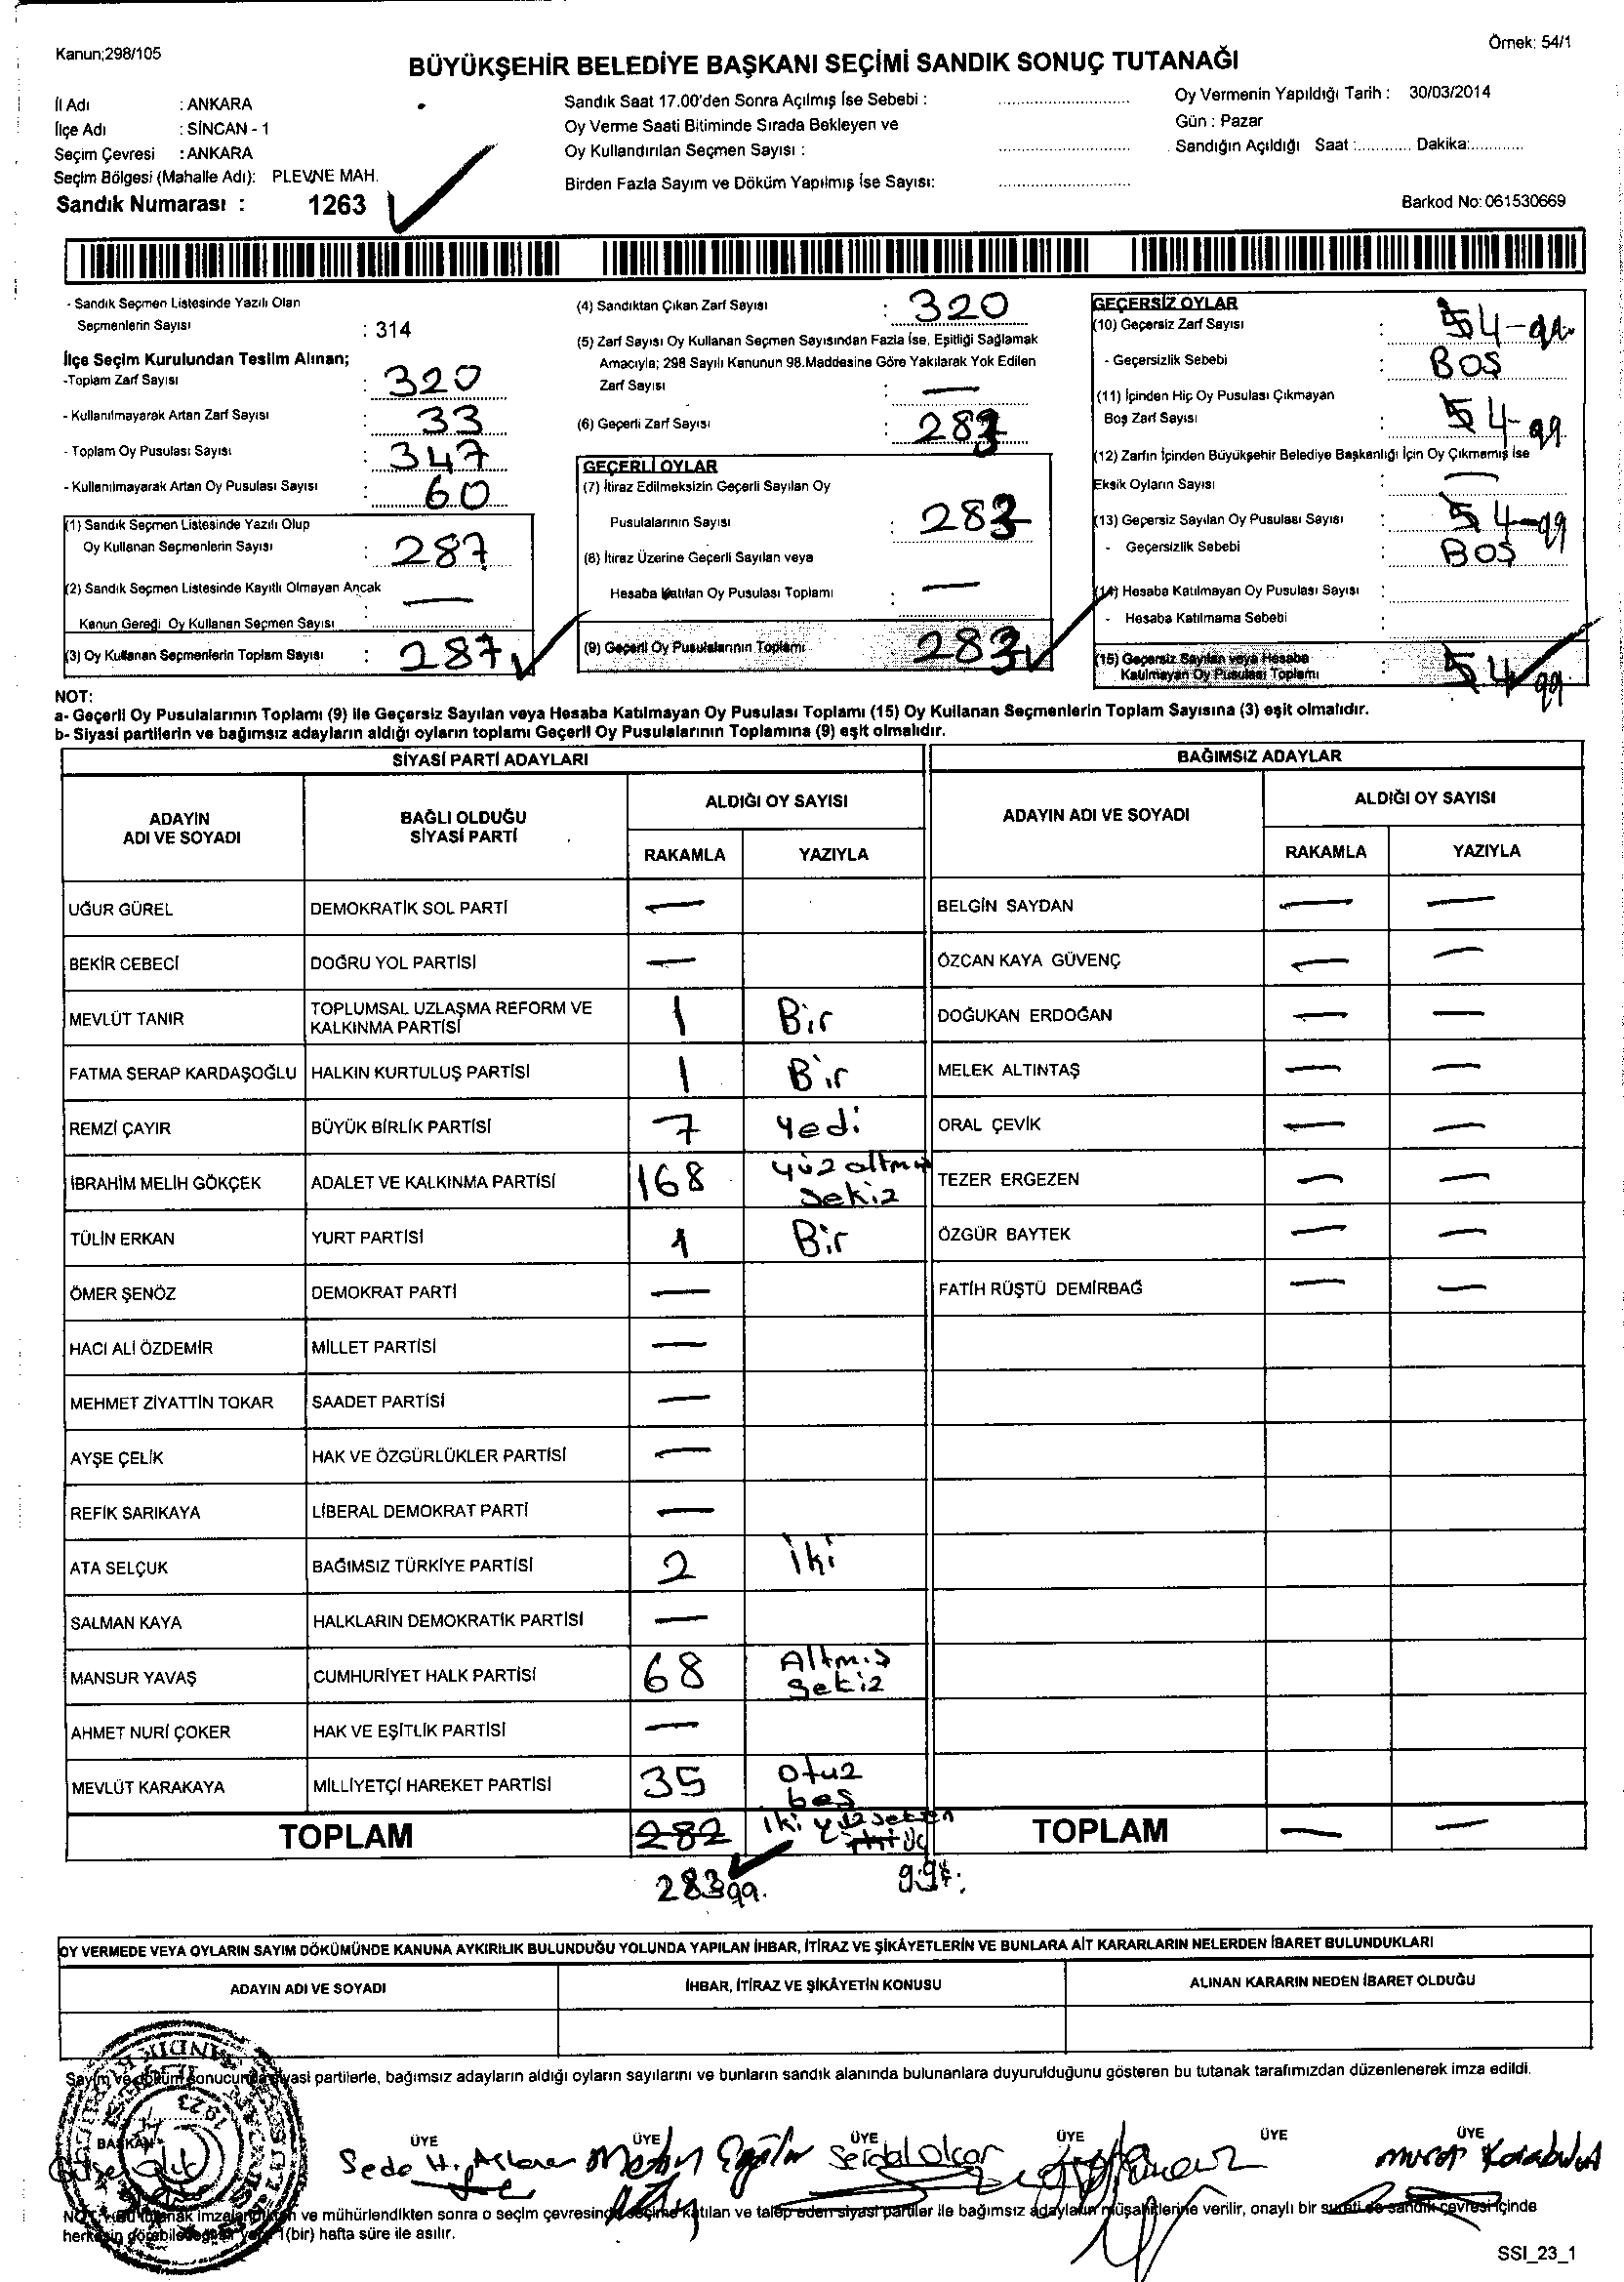 Kanun;298/105
Örnek: 54/1
BÜYÜKŞEHİR BELEDİYE BAŞKANI SEÇİMİ SANDIK SONUÇ TUTANAĞI
İl Adı : ANKARA
İlçe Adı : SİNCAN - 1
Seçim Çevresi : ANKARA
Seçim Bölgesi (Mahalle Adı): PLEVNE MAH.
Sandık Numarası : 1263
Sandık Saat 17.00'den Sonra Açılmış İse Sebebi :
Oy Verme Saati Bitiminde Sırada Bekleyen ve
Oy Kullandırılan Seçmen Sayısı :
Birden Fazla Sayım ve Döküm Yapılmış İse Sayısı:
Oy Vermenin Yapıldığı Tarih : 30/03/2014
Gün : Pazar
Sandığın Açıldığı Saat :............ Dakika:............
Barkod No: 061530669
- Sandık Seçmen Listesinde Yazılı Olan
Seçmenlerin Sayısı : 314
İlçe Seçim Kurulundan Teslim Alınan;
-Toplam Zarf Sayısı : 320
- Kullanılmayarak Artan Zarf Sayısı : 33
- Toplam Oy Pusulası Sayısı : 347
- Kullanılmayarak Artan Oy Pusulası Sayısı : 60
(1) Sandık Seçmen Listesinde Yazılı Olup
Oy Kullanan Seçmenlerin Sayısı : 287
(2) Sandık Seçmen Listesinde Kayıtlı Olmayan Ancak
Kanun Gereği Oy Kullanan Seçmen Sayısı : —
(3) Oy Kullanan Seçmenlerin Toplam Sayısı : 287
(4) Sandıktan Çıkan Zarf Sayısı : 320
(5) Zarf Sayısı Oy Kullanan Seçmen Sayısından Fazla İse, Eşitliği Sağlamak
Amacıyla; 298 Sayılı Kanunun 98.Maddesine Göre Yakılarak Yok Edilen
Zarf Sayısı : —
(6) Geçerli Zarf Sayısı : 283
GEÇERLİ OYLAR
(7) İtiraz Edilmeksizin Geçerli Sayılan Oy
Pusulalarının Sayısı : 283
(8) İtiraz Üzerine Geçerli Sayılan veya
Hesaba Katılan Oy Pusulası Toplamı : —
(9) Geçerli Oy Pusulalarının Toplamı 283
GEÇERSİZ OYLAR
(10) Geçersiz Zarf Sayısı : 5 4
- Geçersizlik Sebebi : BOŞ
(11) İçinden Hiç Oy Pusulası Çıkmayan
Boş Zarf Sayısı : 5 4
(12) Zarfın İçinden Büyükşehir Belediye Başkanlığı İçin Oy Çıkmamış İse
Eksik Oyların Sayısı : —
(13) Geçersiz Sayılan Oy Pusulası Sayısı : 5 4
- Geçersizlik Sebebi : BOŞ
(14) Hesaba Katılmayan Oy Pusulası Sayısı :
- Hesaba Katılmama Sebebi :
(15) Geçersiz Sayılan veya Hesaba
Katılmayan Oy Pusulası Toplamı : 5 4
NOT:
a- Geçerli Oy Pusulalarının Toplamı (9) ile Geçersiz Sayılan veya Hesaba Katılmayan Oy Pusulası Toplamı (15) Oy Kullanan Seçmenlerin Toplam Sayısına (3) eşit olmalıdır.
b- Siyasi partilerin ve bağımsız adayların aldığı oyların toplamı Geçerli Oy Pusulalarının Toplamına (9) eşit olmalıdır.
SİYASİ PARTİ ADAYLARI
ADAYIN ADI VE SOYADI
BAĞLI OLDUĞU SİYASİ PARTİ
ALDIĞI OY SAYISI
RAKAMLA YAZIYLA
UĞUR GÜREL DEMOKRATİK SOL PARTİ —
BEKİR CEBECİ DOĞRU YOL PARTİSİ —
MEVLÜT TANIR TOPLUMSAL UZLAŞMA REFORM VE
KALKINMA PARTİSİ 1 Bir
FATMA SERAP KARDAŞOĞLU HALKIN KURTULUŞ PARTİSİ 1 Bir
REMZİ ÇAYIR BÜYÜK BİRLİK PARTİSİ 7 Yedi
İBRAHİM MELİH GÖKÇEK ADALET VE KALKINMA PARTİSİ 168 yüz altmış
sekiz
TÜLİN ERKAN YURT PARTİSİ 1 Bir
ÖMER ŞENÖZ DEMOKRAT PARTİ —
HACI ALİ ÖZDEMİR MİLLET PARTİSİ —
MEHMET ZİYATTİN TOKAR SAADET PARTİSİ —
AYŞE ÇELİK HAK VE ÖZGÜRLÜKLER PARTİSİ —
REFİK SARIKAYA LİBERAL DEMOKRAT PARTİ —
ATA SELÇUK BAĞIMSIZ TÜRKİYE PARTİSİ 2 iki
SALMAN KAYA HALKLARIN DEMOKRATİK PARTİSİ —
MANSUR YAVAŞ CUMHURİYET HALK PARTİSİ 68 Altmış
Sekiz
AHMET NURİ ÇOKER HAK VE EŞİTLİK PARTİSİ —
MEVLÜT KARAKAYA MİLLİYETÇİ HAREKET PARTİSİ 35 Otuz
beş
TOPLAM 282 iki yüz seksen
iki üç
283
BAĞIMSIZ ADAYLAR
ADAYIN ADI VE SOYADI
ALDIĞI OY SAYISI
RAKAMLA YAZIYLA
BELGİN SAYDAN — —
ÖZCAN KAYA GÜVENÇ — —
DOĞUKAN ERDOĞAN — —
MELEK ALTINTAŞ — —
ORAL ÇEVİK — —
TEZER ERGEZEN — —
ÖZGÜR BAYTEK — —
FATİH RÜŞTÜ DEMİRBAĞ — —
TOPLAM — —
OY VERMEDE VEYA OYLARIN SAYIM DÖKÜMÜNDE KANUNA AYKIRILIK BULUNDUĞU YOLUNDA YAPILAN İHBAR, İTİRAZ VE ŞİKÂYETLERİN VE BUNLARA AİT KARARLARIN NELERDEN İBARET BULUNDUKLARI
ADAYIN ADI VE SOYADI
İHBAR, İTİRAZ VE ŞİKÂYETİN KONUSU
ALINAN KARARIN NEDEN İBARET OLDUĞU
Sayım ve döküm sonucunda siyasi partilerle, bağımsız adayların aldığı oyların sayılarını ve bunların sandık alanında bulunanlara duyurulduğunu gösteren bu tutanak tarafımızdan düzenlenerek imza edildi.
BAŞKAN ÜYE ÜYE ÜYE ÜYE ÜYE ÜYE
1923
Murat Karabulut
NOT: Bu tutanak imzalandıktan ve mühürlendikten sonra o seçim çevresinde seçime katılan ve talep eden siyasi partiler ile bağımsız adayların müşahitlerine verilir, onaylı bir sureti de sandık çevresi içinde
herkesin görebileceği bir yere 1(bir) hafta süre ile asılır.
SSI_23_1